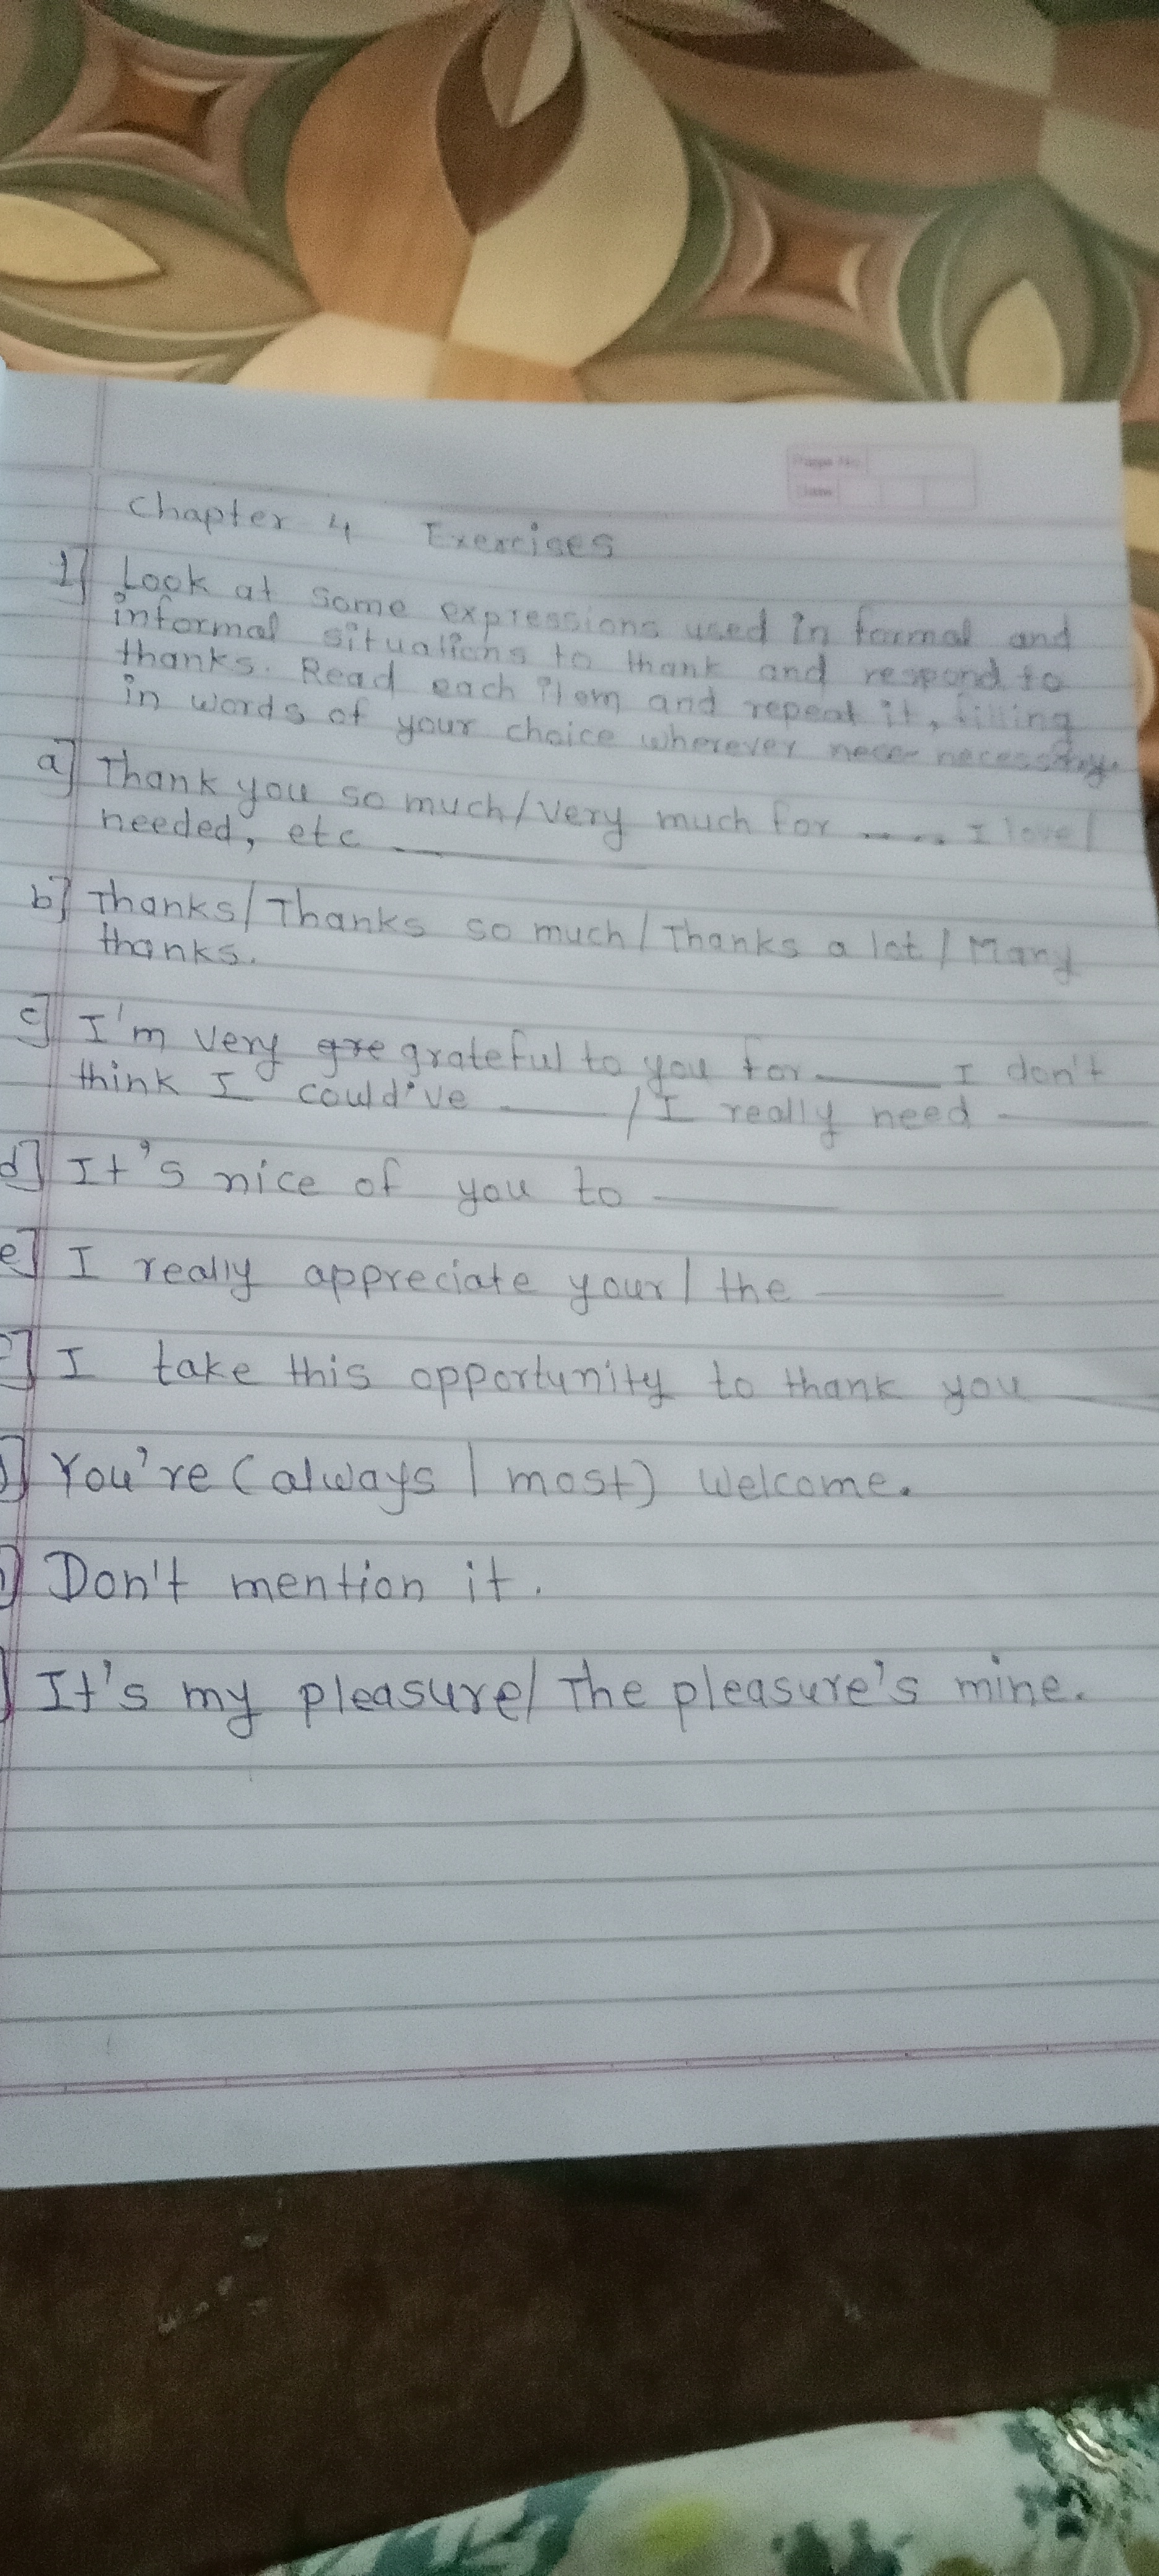 Page No.
Date
Chapter 4 Exercises
1] Look at some expressions used in formal and
informal situations to thank and respond to
thanks. Read each item and repeat it, filling
in words of your choice wherever nece necessary.
a] Thank you so much/very much for ..... I love/
needed, etc ______
b] Thanks/Thanks so much/Thanks a lot/Many
thanks.
c] I'm very gre grateful to you for ______ I don't
think I could've ______ / I really need ______
d] It's nice of you to ______
e] I really appreciate your/the ______
] I take this opportunity to thank you ______
] You're (always/most) welcome.
] Don't mention it.
] It's my pleasure/The pleasure's mine.